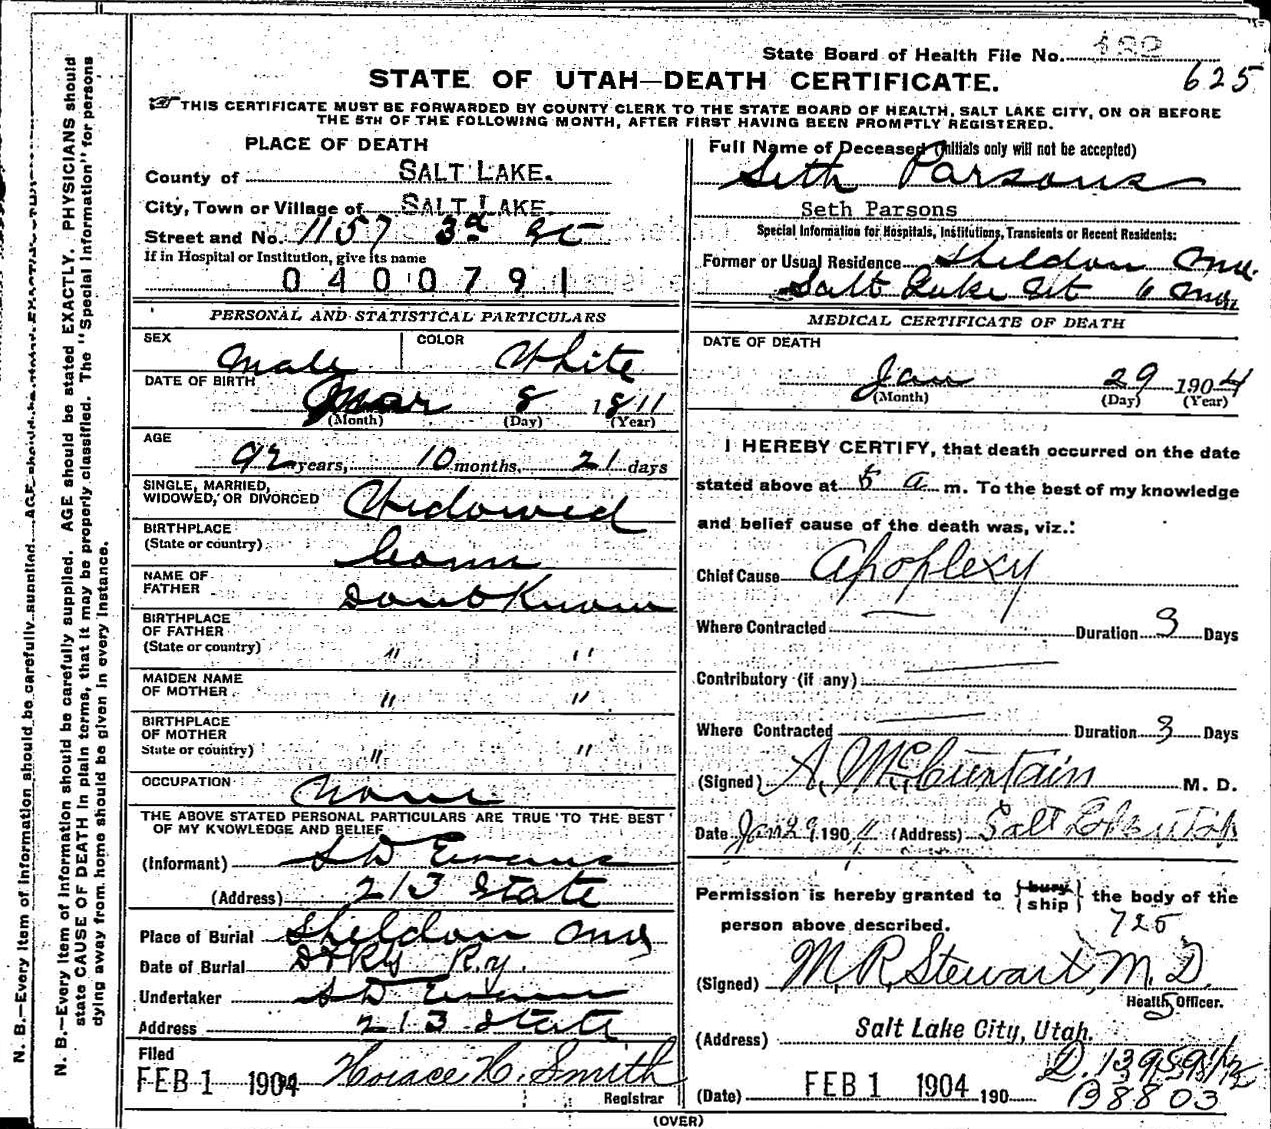 State Board of Health File No.
625
STATE OF UTAH—DEATH CERTIFICATE.
THIS CERTIFICATE MUST BE FORWARDED BY COUNTY CLERK TO THE STATE BOARD OF HEALTH, SALT LAKE CITY, ON OR BEFORE
THE 5TH OF THE FOLLOWING MONTH, AFTER FIRST HAVING BEEN PROMPTLY REGISTERED.
PLACE OF DEATH
County of SALT LAKE.
City, Town or Village of SALT LAKE.
Street and No. 1157 3d St
If in Hospital or Institution, give its name
0400791
PERSONAL AND STATISTICAL PARTICULARS
SEX Male COLOR White
DATE OF BIRTH Mar 8 1811
(Month) (Day) (Year)
AGE
92 years, 10 months, 21 days
SINGLE, MARRIED,
WIDOWED, OR DIVORCED Widowed
BIRTHPLACE
(State or country) Conn
NAME OF
FATHER Dont Know
BIRTHPLACE
OF FATHER
(State or country) " "
MAIDEN NAME
OF MOTHER " "
BIRTHPLACE
OF MOTHER
State or country) " "
OCCUPATION None
THE ABOVE STATED PERSONAL PARTICULARS ARE TRUE TO THE BEST
OF MY KNOWLEDGE AND BELIEF
(Informant) S D Evans
(Address) 213 State
Place of Burial Sheldon
Date of Burial Ry.
Undertaker S D Evans
Address 213 State
Filed
FEB 1 1904 Horace H. Smith
Registrar
Full Name of Deceased (Initials only will not be accepted)
Seth Parsons
Seth Parsons
Special Information for Hospitals, Institutions, Transients or Recent Residents:
Former or Usual Residence Sheldon
Salt Lake Ut 6 Mos
MEDICAL CERTIFICATE OF DEATH
DATE OF DEATH
Jan 29 1904
(Month) (Day) (Year)
I HEREBY CERTIFY, that death occurred on the date
stated above at 5 a m. To the best of my knowledge
and belief cause of the death was, viz.:
Chief Cause Apoplexy
Where Contracted Duration 3 Days
Contributory (if any)
Where Contracted Duration 3 Days
(Signed) A. McCurtain M. D.
Date Jan 29 1904 (Address) Salt Lake Utah
Permission is hereby granted to {bury ship} the body of the
person above described. 725
(Signed) M. R. Stewart, M. D.
Health Officer.
(Address) Salt Lake City, Utah.
(Date) FEB 1 1904 190
D. 13959 1/2
B8803
(OVER)
N. B.—Every item of information should be carefully supplied. AGE should be stated EXACTLY. PHYSICIANS should
state CAUSE OF DEATH in plain terms, that it may be properly classified. The "Special Information" for persons
dying away from home should be given in every instance.
N. B.—Every item of information should be carefully supplied.